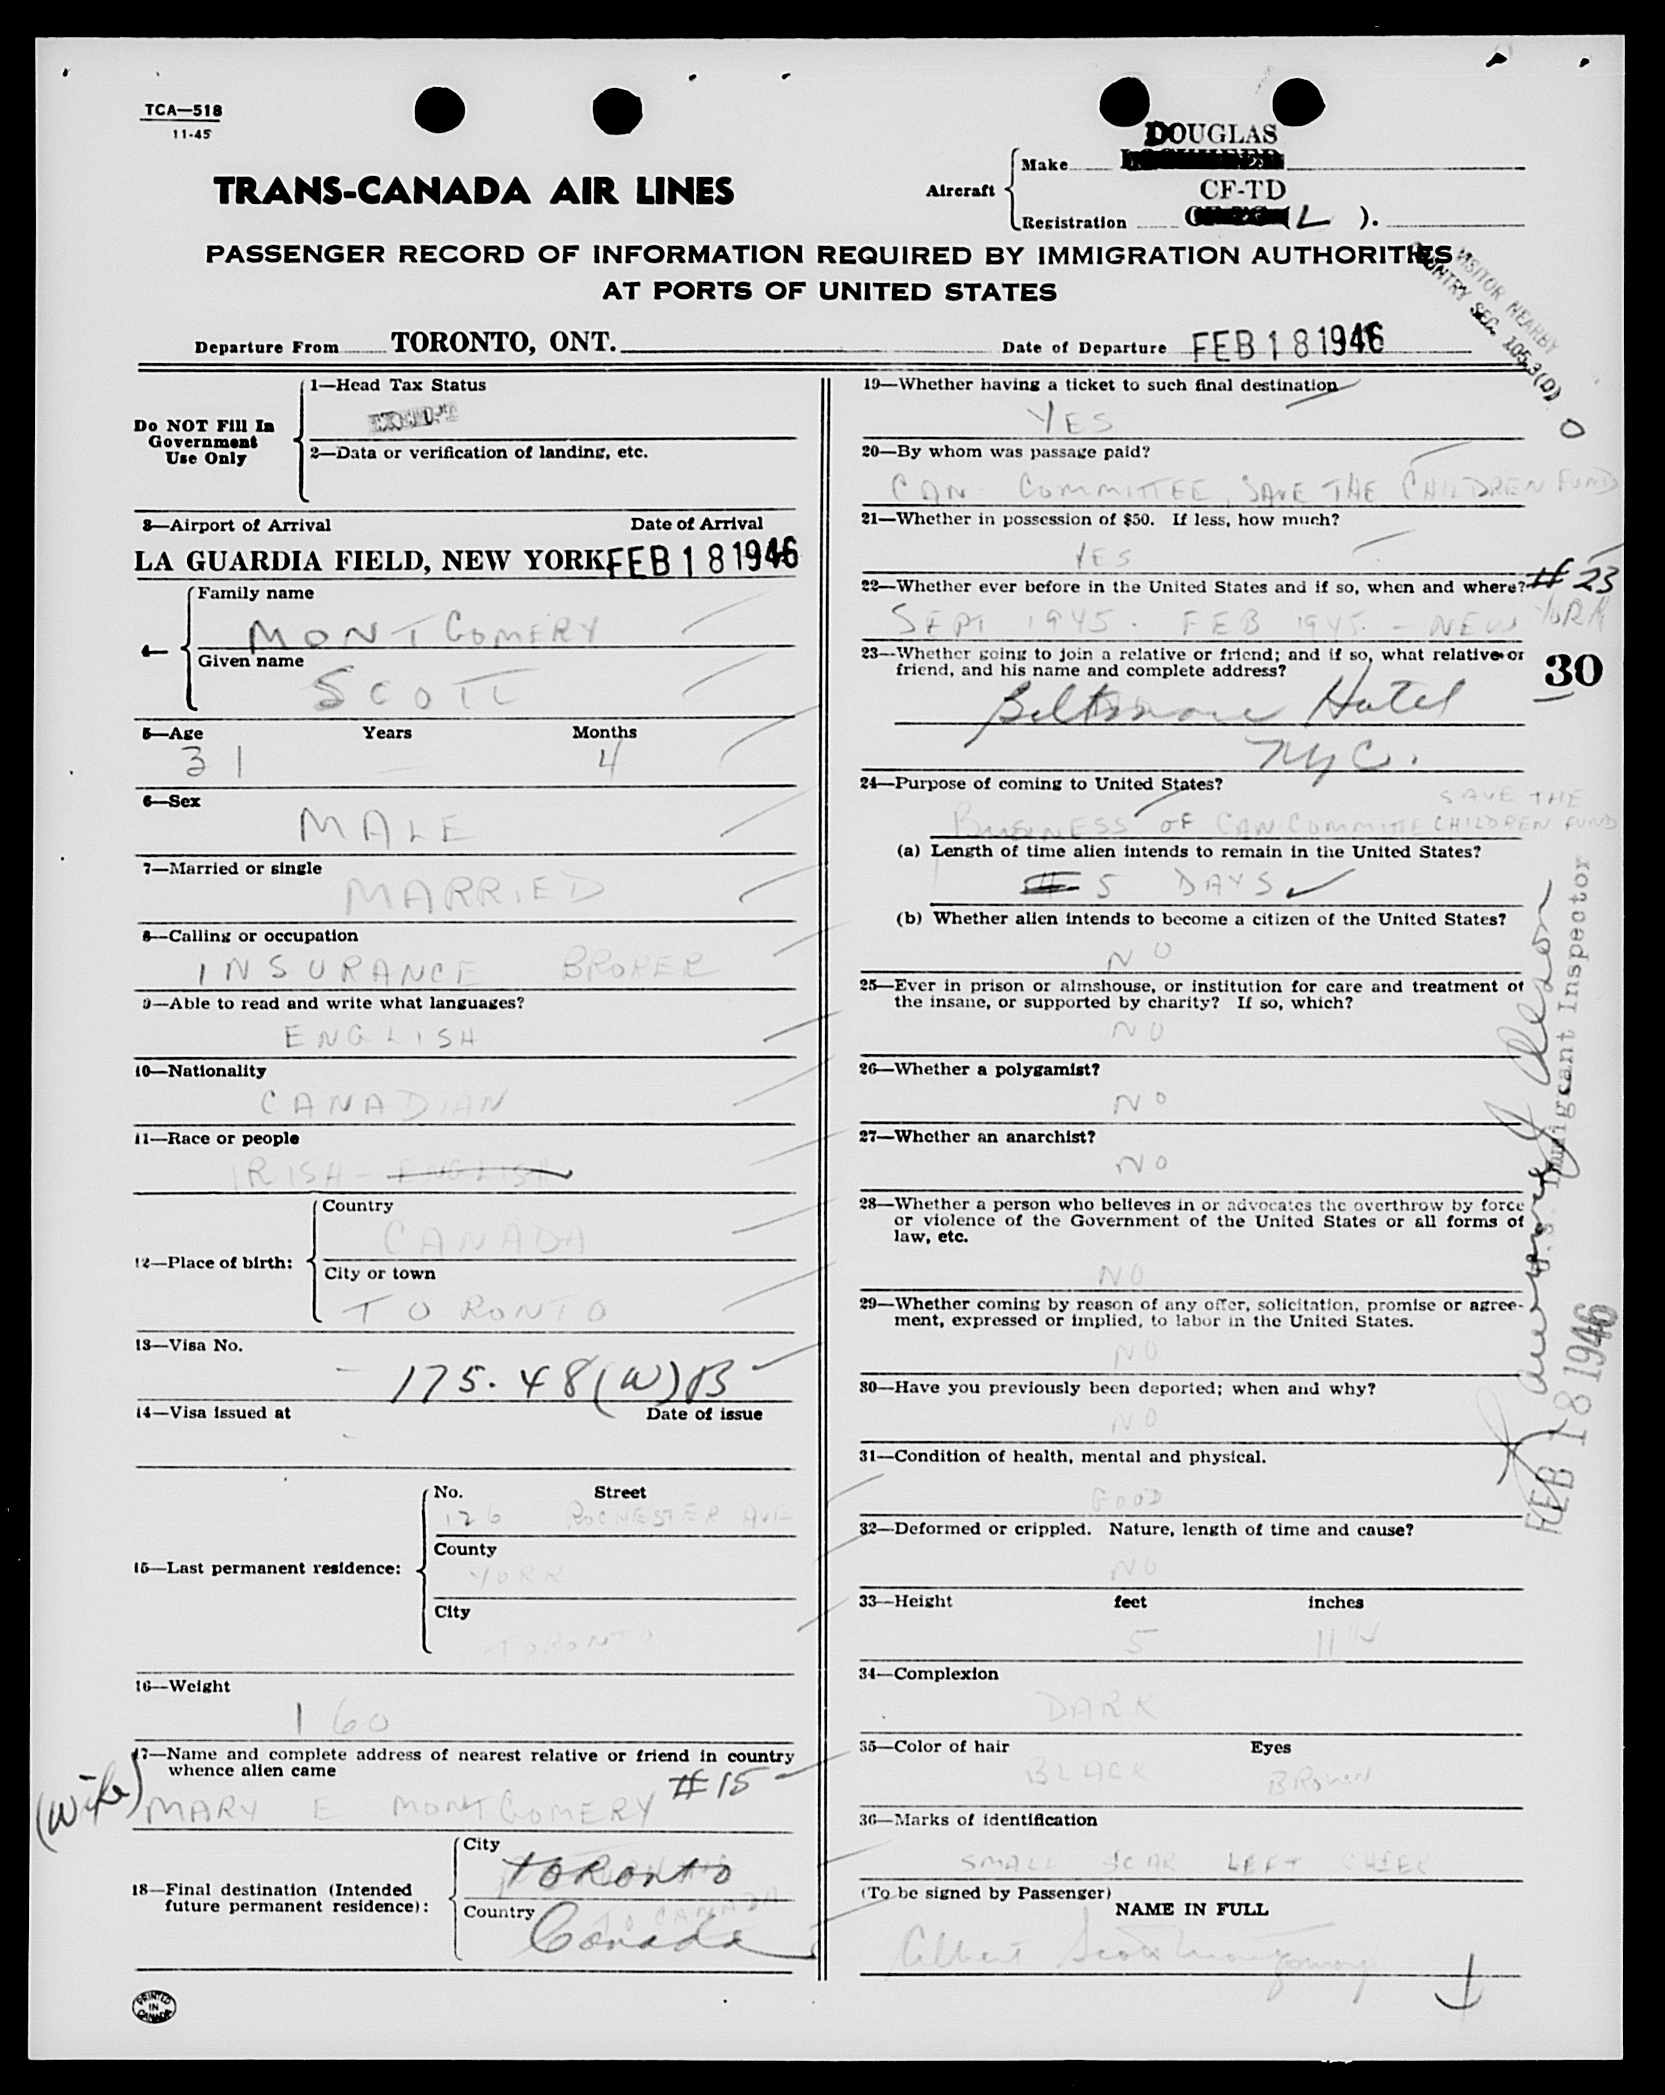 TCA—518
11-45
DOUGLAS
Make
TRANS-CANADA AIR LINES
Aircraft
CF-TD
Registration
(L ).
PASSENGER RECORD OF INFORMATION REQUIRED BY IMMIGRATION AUTHORITIES
AT PORTS OF UNITED STATES
VISITOR NEARBY
COUNTRY SEC. 105.3(D)
Departure From TORONTO, ONT.
Date of Departure FEB 18 1946
Do NOT Fill In
Government
Use Only
1—Head Tax Status
2—Data or verification of landing, etc.
3—Airport of Arrival Date of Arrival
LA GUARDIA FIELD, NEW YORK FEB 18 1946
4—
Family name
MONTGOMERY
Given name
SCOTT
5—Age Years Months
31 4
6—Sex
MALE
7—Married or single
MARRIED
8—Calling or occupation
INSURANCE BROKER
9—Able to read and write what languages?
ENGLISH
10—Nationality
CANADIAN
11—Race or people
IRISH - ENGLISH
12—Place of birth:
Country
CANADA
City or town
TORONTO
13—Visa No.
175.48(W)B
14—Visa issued at Date of issue
15—Last permanent residence:
No. Street
126 ROCHESTER AVE
County
YORK
City
TORONTO
16—Weight
160
17—Name and complete address of nearest relative or friend in country
whence alien came
#15
(wife) MARY E MONTGOMERY
18—Final destination (Intended
future permanent residence):
City
TORONTO
Country
TO CANADA
Canada
PRINTED
IN
CANADA
19—Whether having a ticket to such final destination
YES
20—By whom was passage paid?
CAN. COMMITTEE, SAVE THE CHILDREN FUND
21—Whether in possession of $50. If less, how much?
YES
22—Whether ever before in the United States and if so, when and where?
#23
SEPT 1945. FEB 1945. - NEW YORK
23—Whether going to join a relative or friend; and if so, what relative or
friend, and his name and complete address?
30
Biltmore Hotel
NYC.
24—Purpose of coming to United States?
SAVE THE
BUSINESS OF CAN COMMITTE CHILDREN FUND
(a) Length of time alien intends to remain in the United States?
5 DAYS
(b) Whether alien intends to become a citizen of the United States?
NO
25—Ever in prison or almshouse, or institution for care and treatment of
the insane, or supported by charity? If so, which?
NO
26—Whether a polygamist?
NO
27—Whether an anarchist?
NO
28—Whether a person who believes in or advocates the overthrow by force
or violence of the Government of the United States or all forms of
law, etc.
NO
29—Whether coming by reason of any offer, solicitation, promise or agree-
ment, expressed or implied, to labor in the United States.
NO
30—Have you previously been deported; when and why?
NO
31—Condition of health, mental and physical.
GOOD
32—Deformed or crippled. Nature, length of time and cause?
NO
33—Height feet inches
5 11
34—Complexion
DARK
35—Color of hair Eyes
BLACK BROWN
36—Marks of identification
SMALL SCAR LEFT CHEEK
(To be signed by Passenger)
NAME IN FULL
Albert Scott Montgomery
U.S. Immigrant Inspector
FEB 18 1946